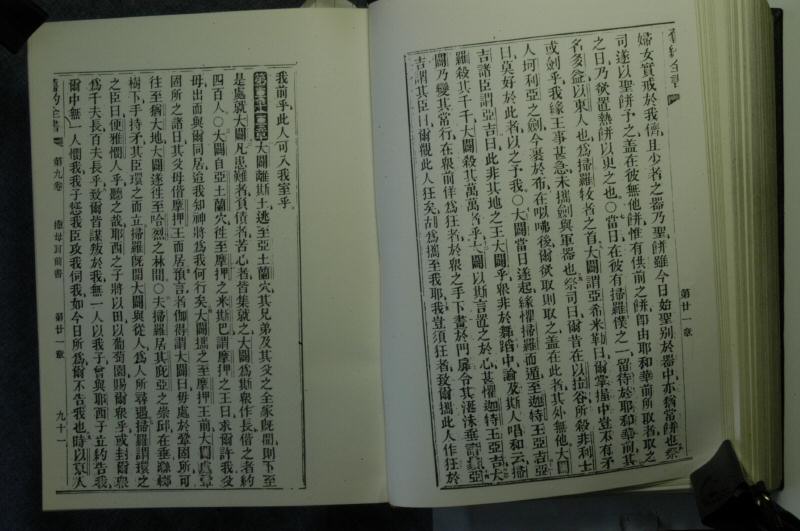 舊約全書
第廿一章
婦女實戒於我儕且少者之器乃聖餅雖今日始聖別於器中亦猶當餅也祭
司遂以聖餅予之蓋在彼無他餅惟有供前之餅卽由耶和華前所取者取之
之日乃欲置熱餅以更之也○當日在彼有掃羅僕之一留待於耶和華前其
名多益以東人也為掃羅牧者之首大闢謂亞希米勒曰爾掌握中豈不有矛
或劍乎我緣王事甚急未攜劍與軍器也祭司曰爾昔在以拉谷所殺非利士
人坷利亞之劍今裹於布在後爾欲取則取之蓋在此者其外無他大闢
曰莫好於此者以之予我○大闢當日遂起緣懼掃羅而遁至迦特王亞吉亞
吉諸臣謂亞吉曰此非其地之王大闢乎衆非於舞蹈中論及斯人唱和云掃
羅殺其千千大闢殺其萬萬者乎大闢以斯言置之於心甚懼迦特王亞吉大
闢乃變其常行在衆前佯為狂者於衆之手下畫於門扉令其涎沫垂亞
吉謂其臣曰爾觀此人狂矣胡為攜至我耶我豈須狂者致爾攜此人作狂於
我前乎此人可入我室乎
大闢離斯土逃至亞土蘭穴其兄弟及其父之全家旣聞則下至
是處就大闢凡患難者負債者苦心者皆集就之大闢為斯衆作長偕之者約
四百人○大闢自亞土蘭穴往至摩押之米斯巴謂摩押之王曰求爾許我父
母出而與爾同居迨我知神將為我何行矣大闢攜之至摩押王前大闢
固所之諸日其父母偕摩押王而居預言者伽得謂大闢曰毋處於鞏固所可
往至猶大地大闢遂往至哈烈之林間○夫掃羅居其庇亞之崇邱在垂絲柳
樹下手持矛其臣環之而立掃羅旣聞大闢與從人為人所尋遇掃羅謂環之
之臣曰便雅憫人乎聽之哉耶西之子將以田以葡萄園賜爾衆乎或封爾衆
為千夫長百夫長乎致爾皆謀叛於我無一人以我子曾與耶西子立約告我
爾中無一人憫我我子惹我臣攻我伺我如今日所為爾不告我也時以東人
舊約全書 第九卷 撒母耳前書 第廿一章 九十一